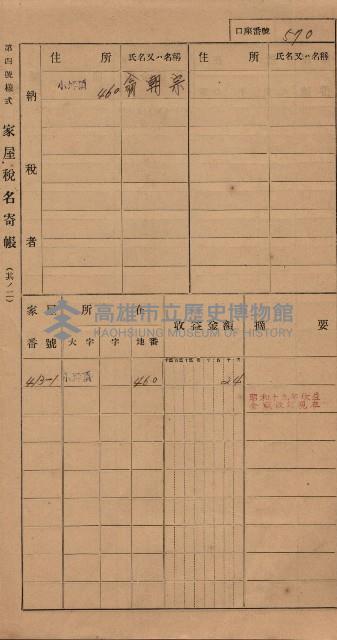 口座番號 570
第四號樣式 家屋稅名寄帳 (其ノ二)
納稅者
住所 氏名又ハ名稱 住所 氏名又ハ名稱
460 俞朝宗
高雄市立歷史博物館
KAOHSIUNG MUSEUM OF HISTORY
家屋所在 收益金額 摘要
番號 大字 字 地番
413-1 460 24
昭和十九年收益